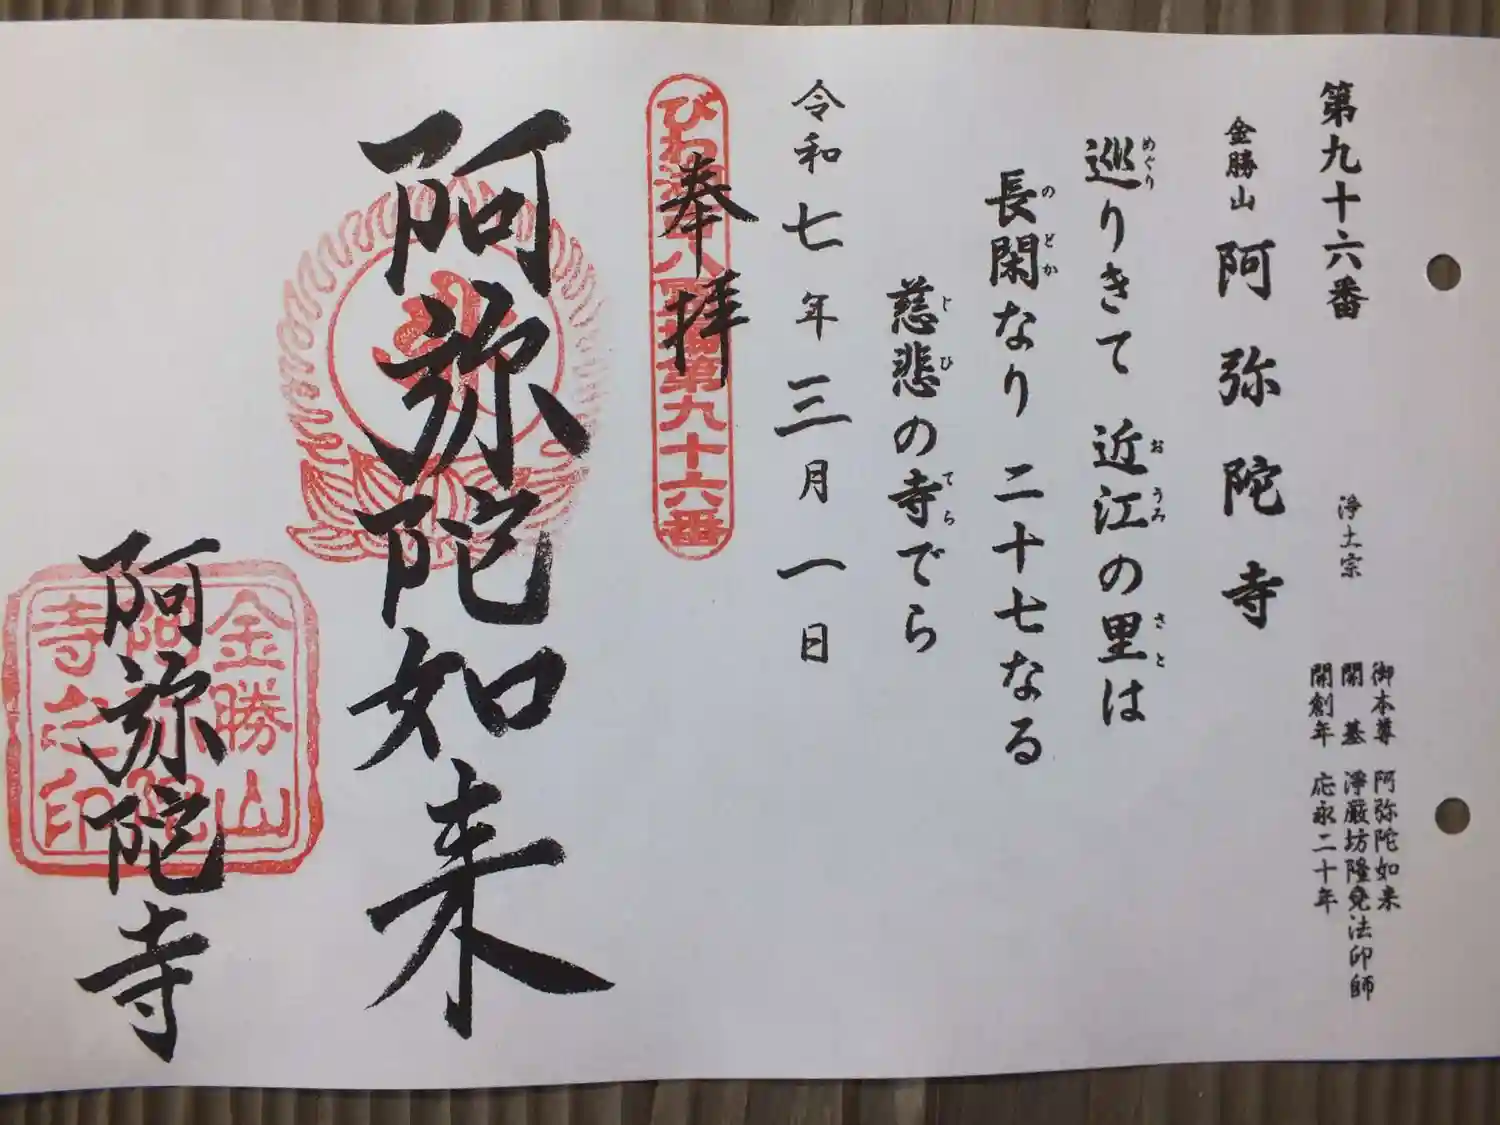 第九十六番
金勝山 阿弥陀寺
浄土宗
御本尊 阿弥陀如来
開基 浄厳坊隆尭法印師
開創年 応永二十年
巡りきて 近江の里は
めぐり おうみ さと
長閑なり 二十七なる
のどか
慈悲の寺でら
じひ てら
令和七年三月一日
奉拝
びわ湖百八霊場第九十六番
阿弥陀如来
阿弥陀寺
金勝山
阿弥陀
寺之印